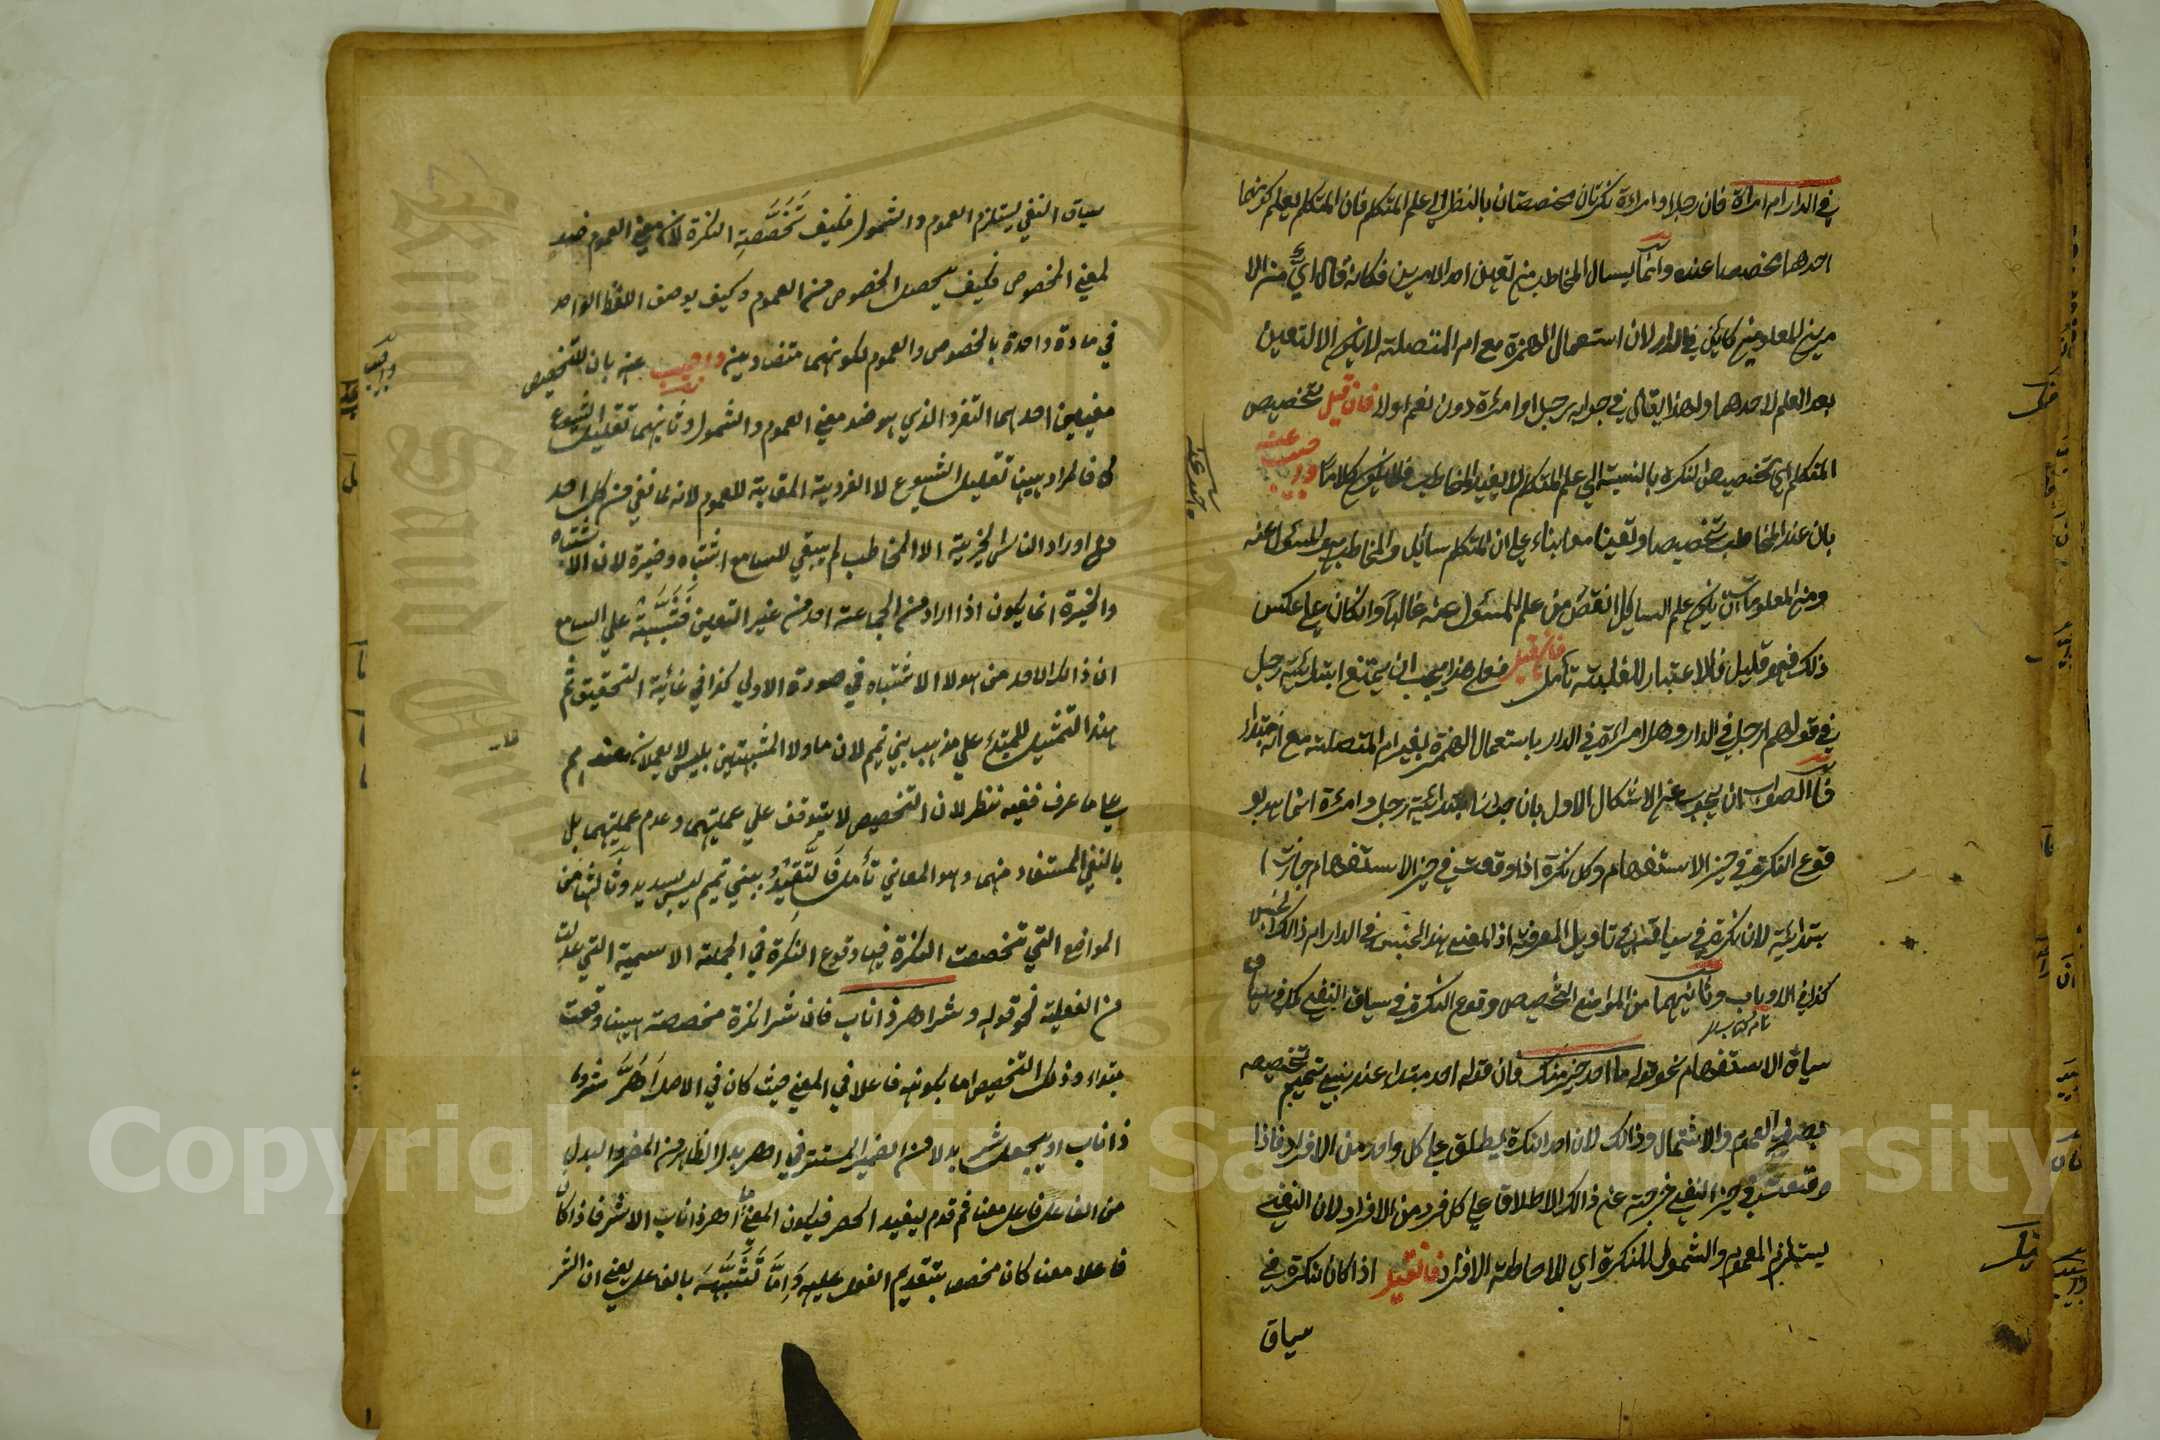 في الدار ام امرأة فان رجلا وامراءة نكرتان مخصصتان بالنظر الي علم المتكلم فان المتكلم يعلم كونهما
احدهما مخصصا عنده وانما يسال المخاطب من تعيين احد الامرين فكانه قال اي من الا
مرين المعلومين كائن في الدار لان استعمال الهمزة مع ام المتصلة لا يكون الا لتعيين
بعد العلم لاحدهما ولهذا يقال في جوابه رجل او امرءة دون نعم او لا فان قيل تخصيص
المتكلم اي تخصيص النكرة بالنسبة الي علم المتكلم لا يفيد المخاطب فلا يكون كلاما واجيب عنه
بان عند المخاطب تخصيصا وتعينا معا بناء علي ان المتكلم سائل والمخاطب هو المسئول عنه
ومن المعلومات ان يكون علم السايل انقص من علم المسئول عنه غالبا وان كان علي عكس
ذلك فهو قليل فلا اعتبار للغلبة تأمل فان قيل فعلي هذا يجب ان يمتنع ابتدائية رجل
في قولهم ارجل في الدار وهل امراءة في الدار باستعمال الهمزة بغير ام المتصلة مع انه مبتداء
فالصواب ان يجوب عن الاشكال الاول بان جواز ابتدائية رجل وامرءة انما هو بو
قوع النكرة في حيز الاستفهام وكل نكرة اذا وقعت في حيز الاستفهام جازت ا
بتدائية لان نكرة في سياقه في تاويل المعرفة اذ المعني هذا الجنس في الدار ام ذالك الجنس
كذا في اللاوباب وثانيهما من المواضع التخصيص وقوع النكرة في سياق النفي كما في سياق
سياق الاستفهام نحو قوله ما احد خير منك فان قوله احد مبتداء عند بني تميم تخصيصه
بصفة العموم والاشتمال وذالك لان احد النكرة يطلق علي كل واحد من الافراد فاذا
وقعت في حيز النفي خرجت عن ذالك الاطلاق علي كل فرد من الافراد لان النفي
يستلزم العموم والشمول للنكرة اي لاحاطة الافراد فان قيل اذا كان نكرة في
سياق
سياق النفي يستلزم العموم والشمول فكيف تخصصت النكرة لان معني العموم ضد
لمعني الخصوص فكيف يحصل الخصوص من العموم وكيف يوصف اللفظ الواحد
في مادة واحدة بالخصوص والعموم لكونهما متضادين واجيب عنه بان للتخصيص
معنيين احدهما التفرد الذي هو ضد معني العموم والشمول وثانيهما تقليل الشيوع
كا فالمراد ههنا تقليل الشيوع لا الفردية المقابة للعموم لانه لما نفي من كل احد
مع اوراد الناس الخيرية الا المخاطب لم يبقي للسامع اشتباه وخيرة لان الاشتباه
والخيرة انما يكون اذا اراد من الجماعة احد من غير التعين فتشبته علي السامع
ان ذالك الاحد من هولا الاشتباه في صورة الاولي كذا في غاية التحقيق ثم
هذا التمثيل للمبتدء علي مذهب بني تميم لان ما ولا المشبهتين بليس لا يعملان عندهم
علي ما عرف ففيه نظر لان التخصيص لا يتوقف علي عمليتهما وعدم عمليتهما بل
بالنفي المستفاد منهما وهو المعاني تأمل فالتقيد ببني تميم ليس بسديد وثالثها من
المواضع التي تخصصت النكرة فيها وقوع النكرة في الجملة الاسمية التي عدلت
من الفعلية نحو قوله وشر اهر ذا ناب فان شر نكرة مخصصة ههنا وقعت
مبتداء وذلك التخصيص اما بكونه فاعلا في المعني حيث كان في الاصل اهر شر
ذا ناب او يجعل شر بدلا من الضمير المستتر في اهر بدل الظاهر من المضمر والبدل
من الفاعل فاعل معنا ثم قدم ليفيد الحصر فيكون المعني ما اهر ذا ناب الا شر فاذا كان
فاعلا معنا كان مخصص بتقديم الفعل عليه واما تشبهه بالفاعل يعني ان الشر
Copyright © King Saud University
King Saud University
1957